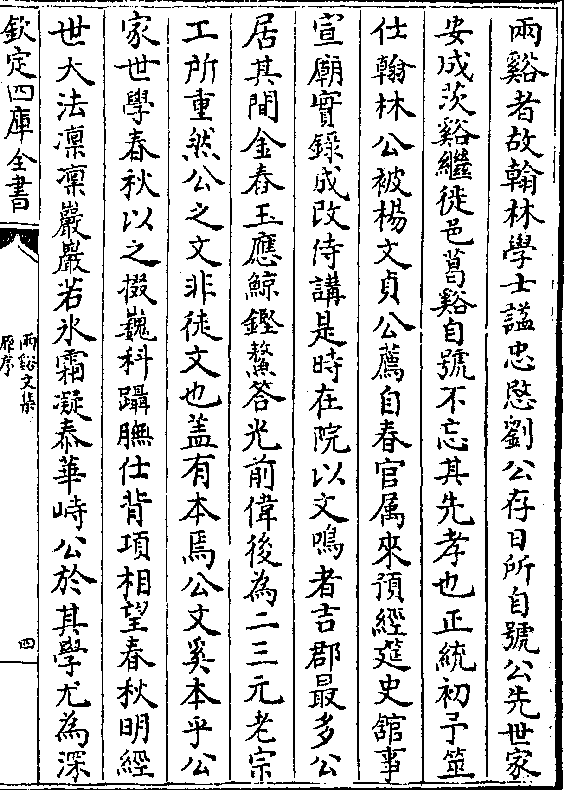 兩谿者故翰林學士諡忠愍劉公存日所自號公先世家
安成茨谿繼徙邑葛谿自號不忘其先孝也正統初予筮
仕翰林公被楊文貞公薦自春官属來預經筵史舘事
宣廟實錄成改侍講是時在院以文鳴者吉郡最多公
居其間金舂玉應鯨鏗鰲答光前偉後為二三元老宗
工所重然公之文非徒文也盖有本焉公文奚本乎公
家世學春秋以之掇巍科躡膴仕背項相望春秋明經
世大法凛凛巖巖若氷霜凝泰華峙公於其學尤為深
欽定四庫全書
兩谿文集
原序
四